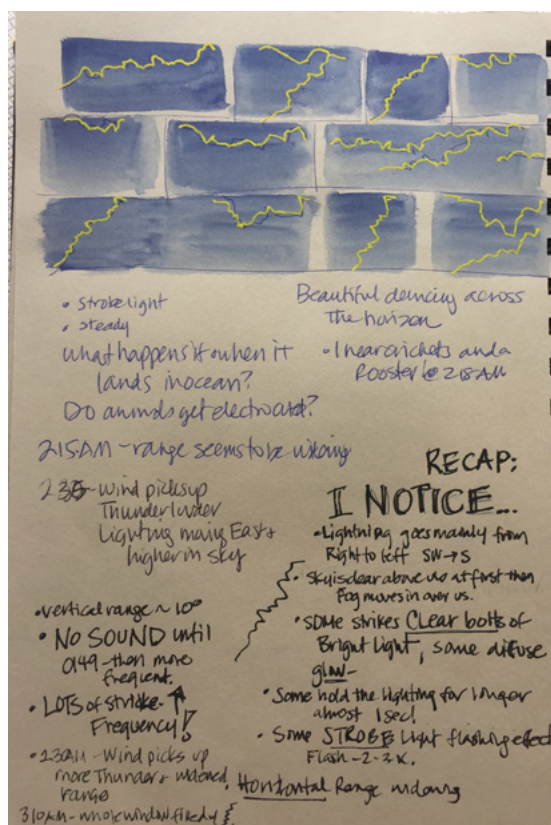 • strobe light
• steady
what happens if when it
lands in ocean?
Do animals get electrocuted?
Beautiful dancing across
the horizon
• I hear crickets and a
Rooster @ 2:18 AM
2:15 AM - range seems to be widening
235 - Wind picks up
Thunder louder
Lighting East +
higher in sky
• vertical range ~ 10°
• NO SOUND until
0149 - then more
frequent.
• LOTS of strike
Frequency!
• 230AM - Wind picks up
more Thunder + widened
range
310AM - whole window
RECAP:
I NOTICE...
• Lightning goes mainly from
Right to left SW → S
• Sky is clear above us at first then
Fog moves in over us.
• some strikes Clear bolts of
Bright Light, some diffuse
glow -
• Some hold the lighting for longer
almost 1 sec!
• Some STROBE Light flashing effect
Flash - 2-3 x.
• Horizontal Range widening